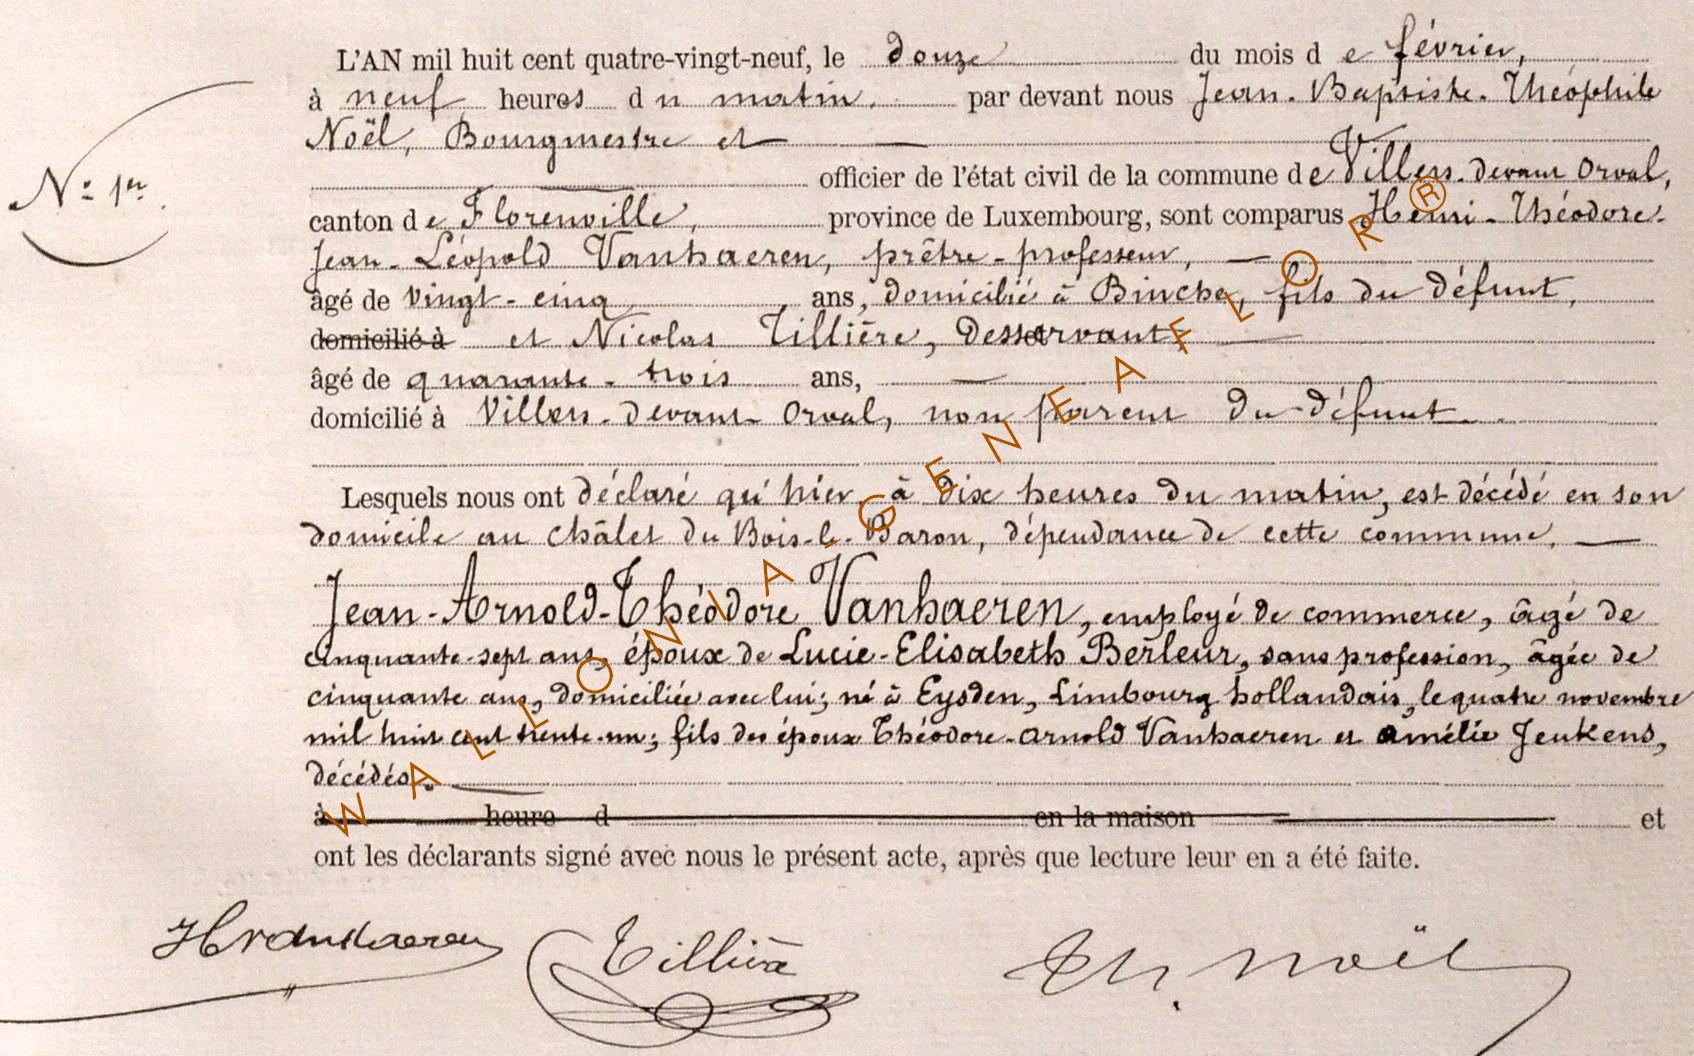 L'AN mil huit cent quatre-vingt-neuf, le douze du mois de février,
à neuf heures du matin. par devant nous Jean-Baptiste-Théophile
Noël, Bourgmestre et
N° 1er
officier de l'état civil de la commune de Villers-devant Orval,
canton de Florenville, province de Luxembourg, sont comparus Henri-Théodore-
Jean-Léopold Vanhaeren, prêtre-professeur,
âgé de vingt-cinq ans, domicilié à Binche, fils du défunt,
domicilié à et Nicolas Tillière, desservant,
âgé de quarante-trois ans,
domicilié à Villers-devant Orval, non parent du défunt
Lesquels nous ont déclaré qu'hier à dix heures du matin, est décédé en son
domicile au châlet du Bois-le-Baron, dépendance de cette commune,
Jean-Arnold-Théodore Vanhaeren, employé de commerce, âgé de
cinquante-sept ans, époux de Lucie-Elisabeth Berleur, sans profession, âgée de
cinquante ans, domiciliée avec lui; né à Eysden, Limbourg hollandais, le quatre novembre
mil huit cent trente-un; fils des époux Théodore-Arnold Vanhaeren et Amélie Jeukens,
décédés.
à heure d en la maison et
ont les déclarants signé avec nous le présent acte, après que lecture leur en a été faite.
HVanhaeren Tillière Th. Noël
WALLONIA GENEAFLOR®